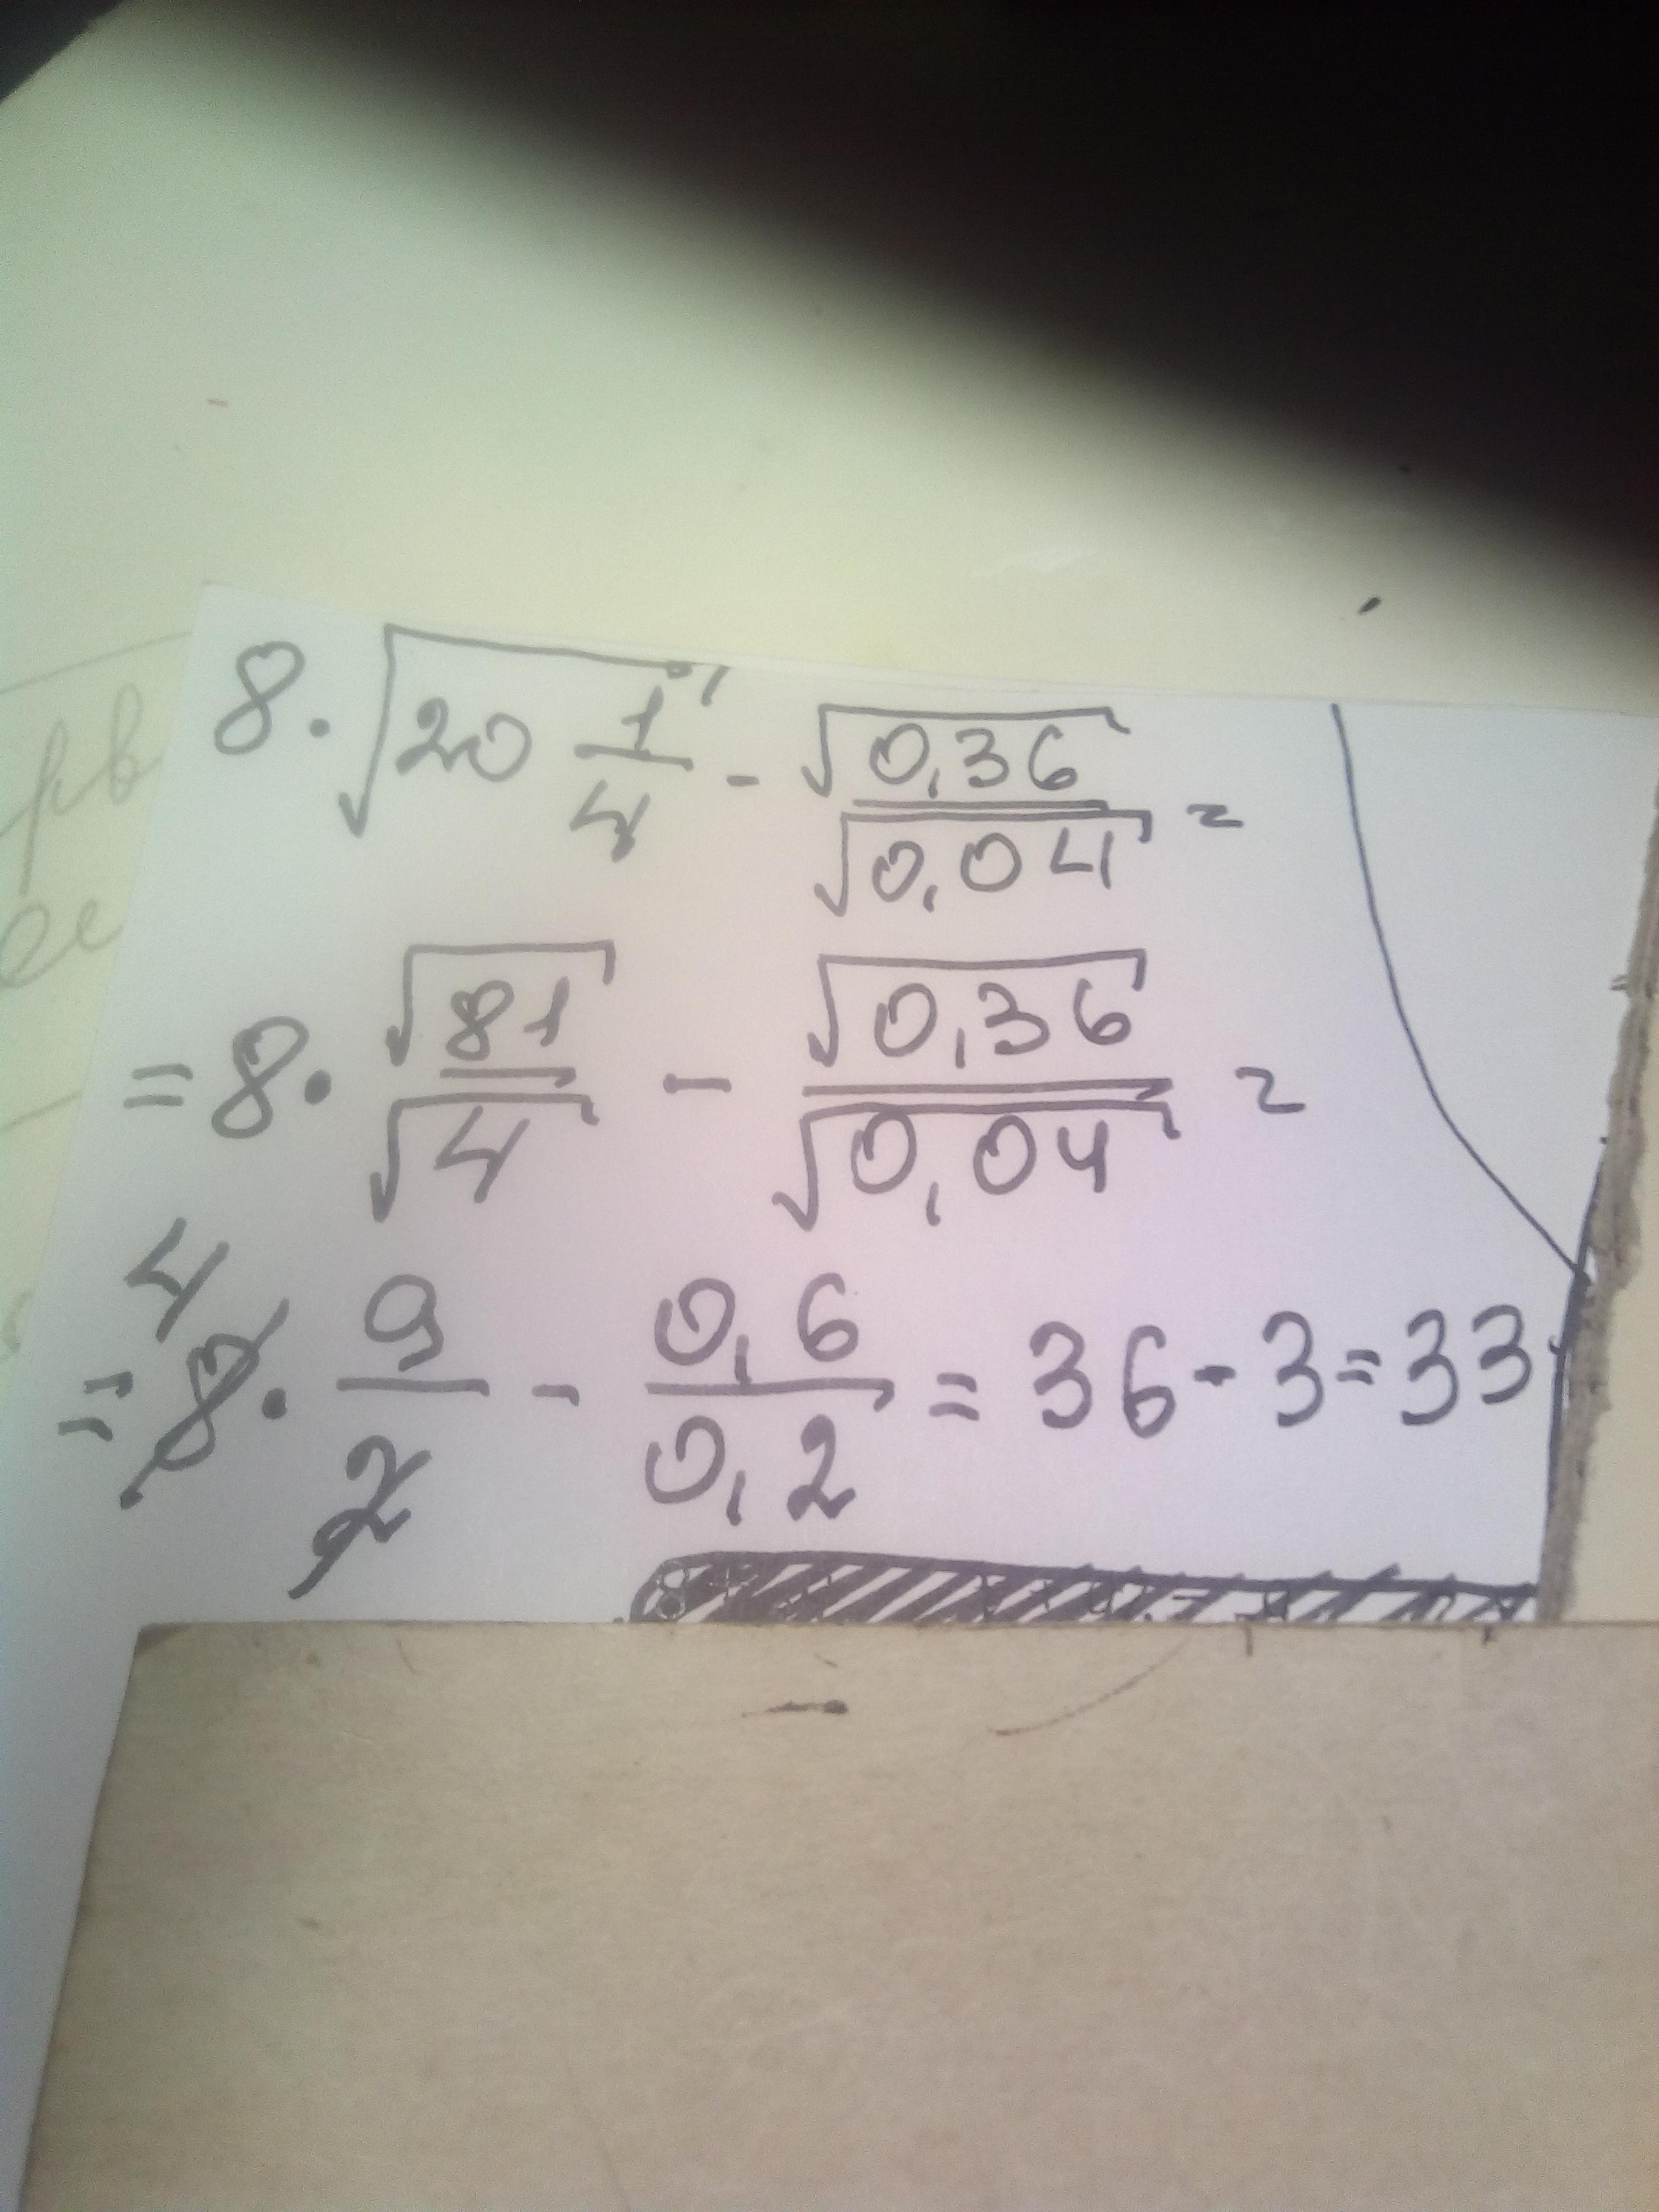 8·√20 1/4 - √0,36/√0,04 =
= 8·√81/√4 - √0,36/√0,04 =
= 8·9/2 - 0,6/0,2 = 36-3=33